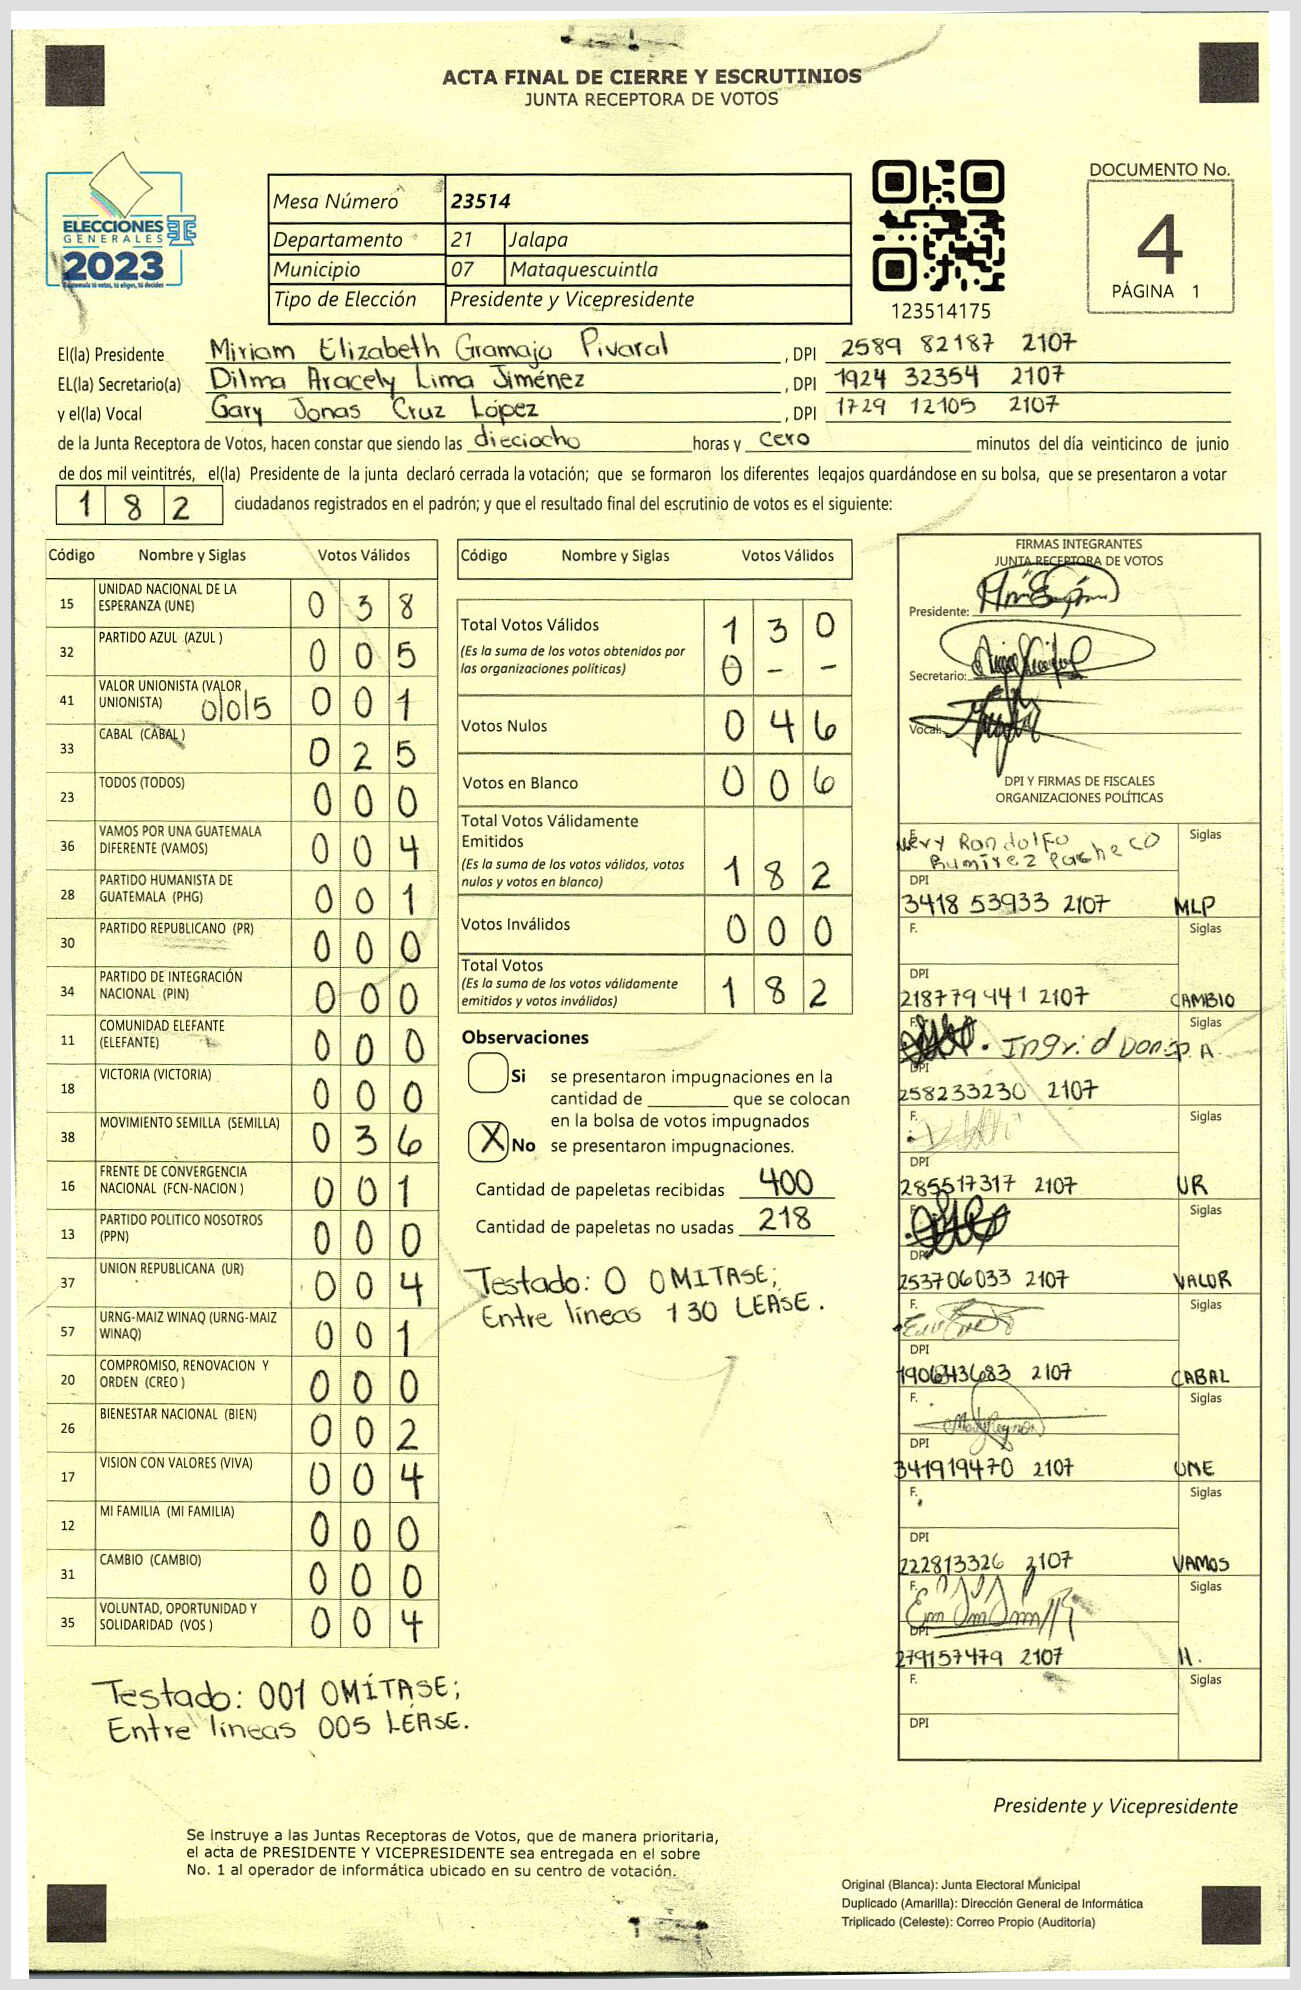 ACTA FINAL DE CIERRE Y ESCRUTINIOS
JUNTA RECEPTORA DE VOTOS
ELECCIONES
GENERALES
2023
Guatemala tú votas, tú eliges, tú decides
Mesa Número 23514
Departamento 21 Jalapa
Municipio 07 Mataquescuintla
Tipo de Elección Presidente y Vicepresidente
123514175
DOCUMENTO No.
4
PÁGINA 1
El(la) Presidente Miriam Elizabeth Gramajo Pivaral , DPI 2589 82187 2107
EL(la) Secretario(a) Dilma Aracely Lima Jiménez , DPI 1924 32354 2107
y el(la) Vocal Gary Jonas Cruz López , DPI 1729 12105 2107
de la Junta Receptora de Votos, hacen constar que siendo las dieciocho horas y cero minutos del día veinticinco de junio
de dos mil veintitrés, el(la) Presidente de la junta declaró cerrada la votación; que se formaron los diferentes legajos quardándose en su bolsa, que se presentaron a votar
182 ciudadanos registrados en el padrón; y que el resultado final del escrutinio de votos es el siguiente:
Código Nombre y Siglas Votos Válidos
15 UNIDAD NACIONAL DE LA
ESPERANZA (UNE) 038
32 PARTIDO AZUL (AZUL ) 005
41 VALOR UNIONISTA (VALOR
UNIONISTA) 0|0|5 001
33 CABAL (CABAL ) 025
23 TODOS (TODOS) 000
36 VAMOS POR UNA GUATEMALA
DIFERENTE (VAMOS) 004
28 PARTIDO HUMANISTA DE
GUATEMALA (PHG) 001
30 PARTIDO REPUBLICANO (PR) 000
34 PARTIDO DE INTEGRACIÓN
NACIONAL (PIN) 000
11 COMUNIDAD ELEFANTE
(ELEFANTE) 000
18 VICTORIA (VICTORIA) 000
38 MOVIMIENTO SEMILLA (SEMILLA) 036
16 FRENTE DE CONVERGENCIA
NACIONAL (FCN-NACION ) 001
13 PARTIDO POLITICO NOSOTROS
(PPN) 000
37 UNION REPUBLICANA (UR) 004
57 URNG-MAIZ WINAQ (URNG-MAIZ
WINAQ) 001
20 COMPROMISO, RENOVACION Y
ORDEN (CREO ) 000
26 BIENESTAR NACIONAL (BIEN) 002
17 VISION CON VALORES (VIVA) 004
12 MI FAMILIA (MI FAMILIA) 000
31 CAMBIO (CAMBIO) 000
35 VOLUNTAD, OPORTUNIDAD Y
SOLIDARIDAD (VOS ) 004
Testado: 001 OMÍTASE;
Entre líneas 005 LÉASE.
Código Nombre y Siglas Votos Válidos
Total Votos Válidos 130
(Es la suma de los votos obtenidos por
las organizaciones políticas) 0 - -
Votos Nulos 046
Votos en Blanco 006
Total Votos Válidamente
Emitidos
(Es la suma de los votos válidos, votos
nulos y votos en blanco) 182
Votos Inválidos 000
Total Votos
(Es la suma de los votos válidamente
emitidos y votos inválidos) 182
Observaciones
Si se presentaron impugnaciones en la
cantidad de ________ que se colocan
en la bolsa de votos impugnados
X No se presentaron impugnaciones.
Cantidad de papeletas recibidas 400
Cantidad de papeletas no usadas 218
Testado: 0 OMITASE;
Entre líneas 130 LEASE.
FIRMAS INTEGRANTES
JUNTA RECEPTORA DE VOTOS
Presidente:
Secretario:
Vocal:
DPI Y FIRMAS DE FISCALES
ORGANIZACIONES POLÍTICAS
F. Nery Rondolfo Siglas
Ramirez Pacheco
DPI
3418 53933 2107 MLP
F. Siglas
DPI
218779441 2107 CAMBIO
F. Ingrid Donis P.A. Siglas
DPI
258233230 2107
F. Siglas
DPI
285517317 2107 UR
F. Siglas
DPI
253706033 2107 VALOR
F. Siglas
DPI
190643683 2107 CABAL
F. Siglas
DPI
341919470 2107 UNE
F. Siglas
DPI
222813326 2107 VAMOS
F. Siglas
DPI
279157479 2107 H.
F. Siglas
DPI
Presidente y Vicepresidente
Se instruye a las Juntas Receptoras de Votos, que de manera prioritaria,
el acta de PRESIDENTE Y VICEPRESIDENTE sea entregada en el sobre
No. 1 al operador de informática ubicado en su centro de votación.
Original (Blanca): Junta Electoral Municipal
Duplicado (Amarilla): Dirección General de Informática
Triplicado (Celeste): Correo Propio (Auditoría)